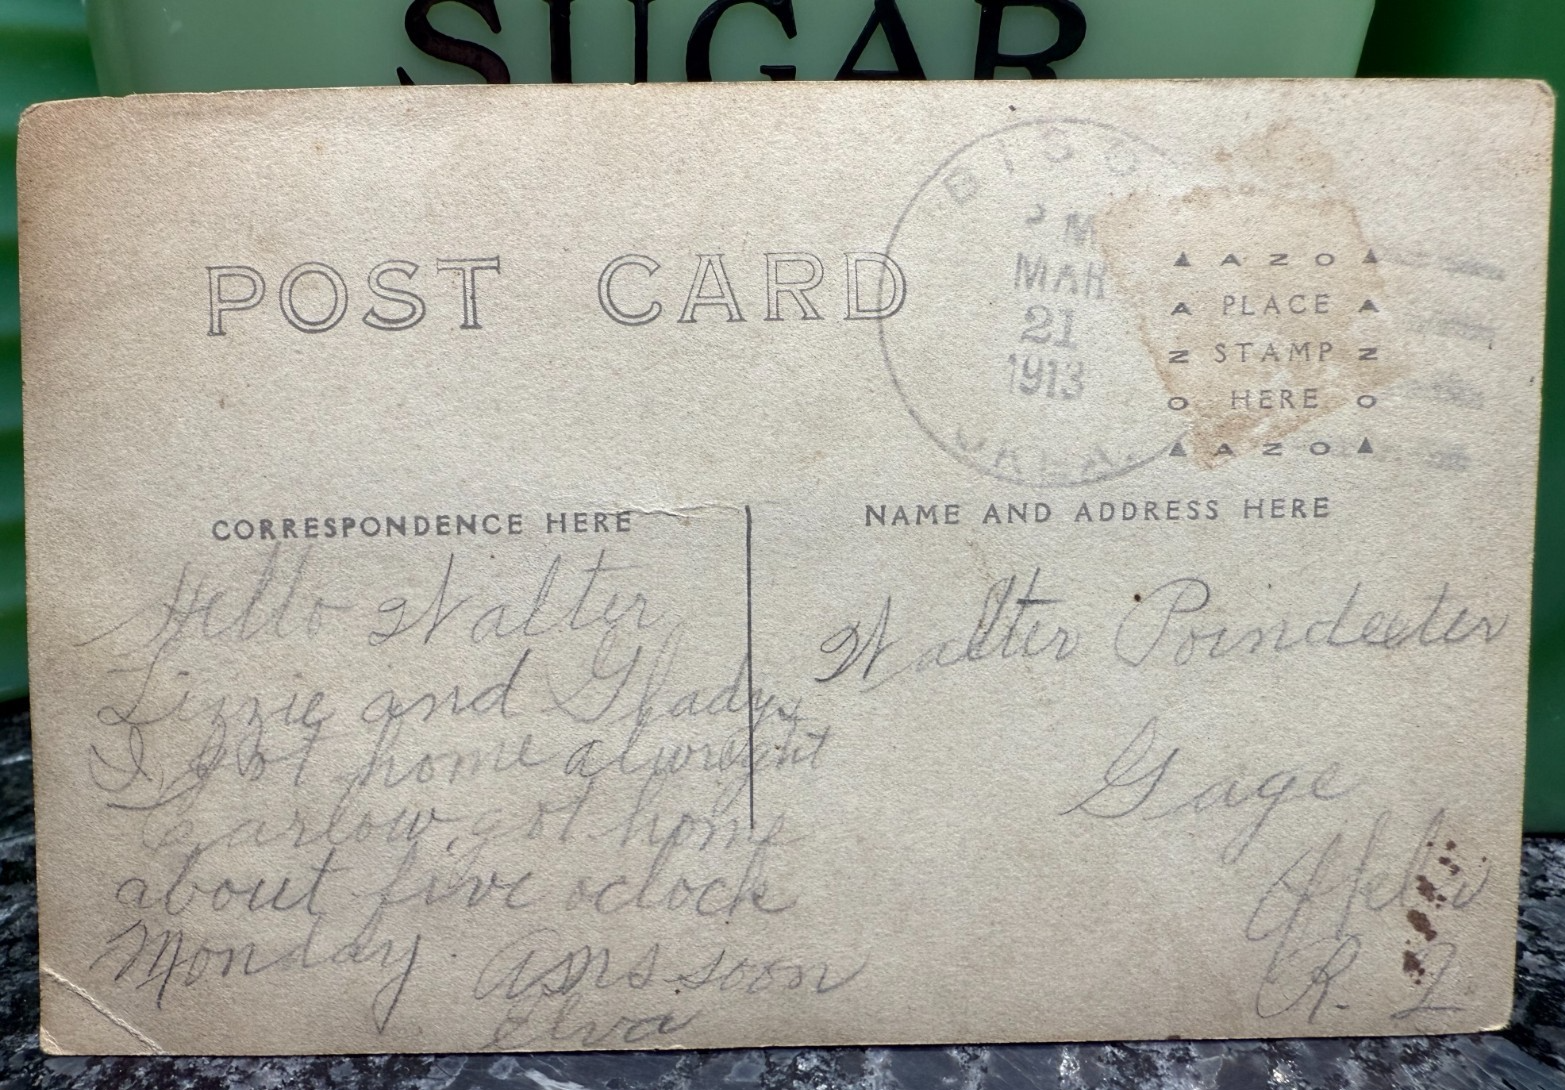 SUGAR
POST CARD
PM
MAR
21
1913
OKLA.
▲ A Z O ▲
A PLACE A
Z STAMP Z
O HERE O
▲ A Z O ▲
CORRESPONDENCE HERE
NAME AND ADDRESS HERE
Hello Walter
Lizzie and Gladys
I got home alwright
Carlow got home
about five oclock
Monday. Ans soon
Elva
Walter Poindexter
Gage
Okla
R. 2